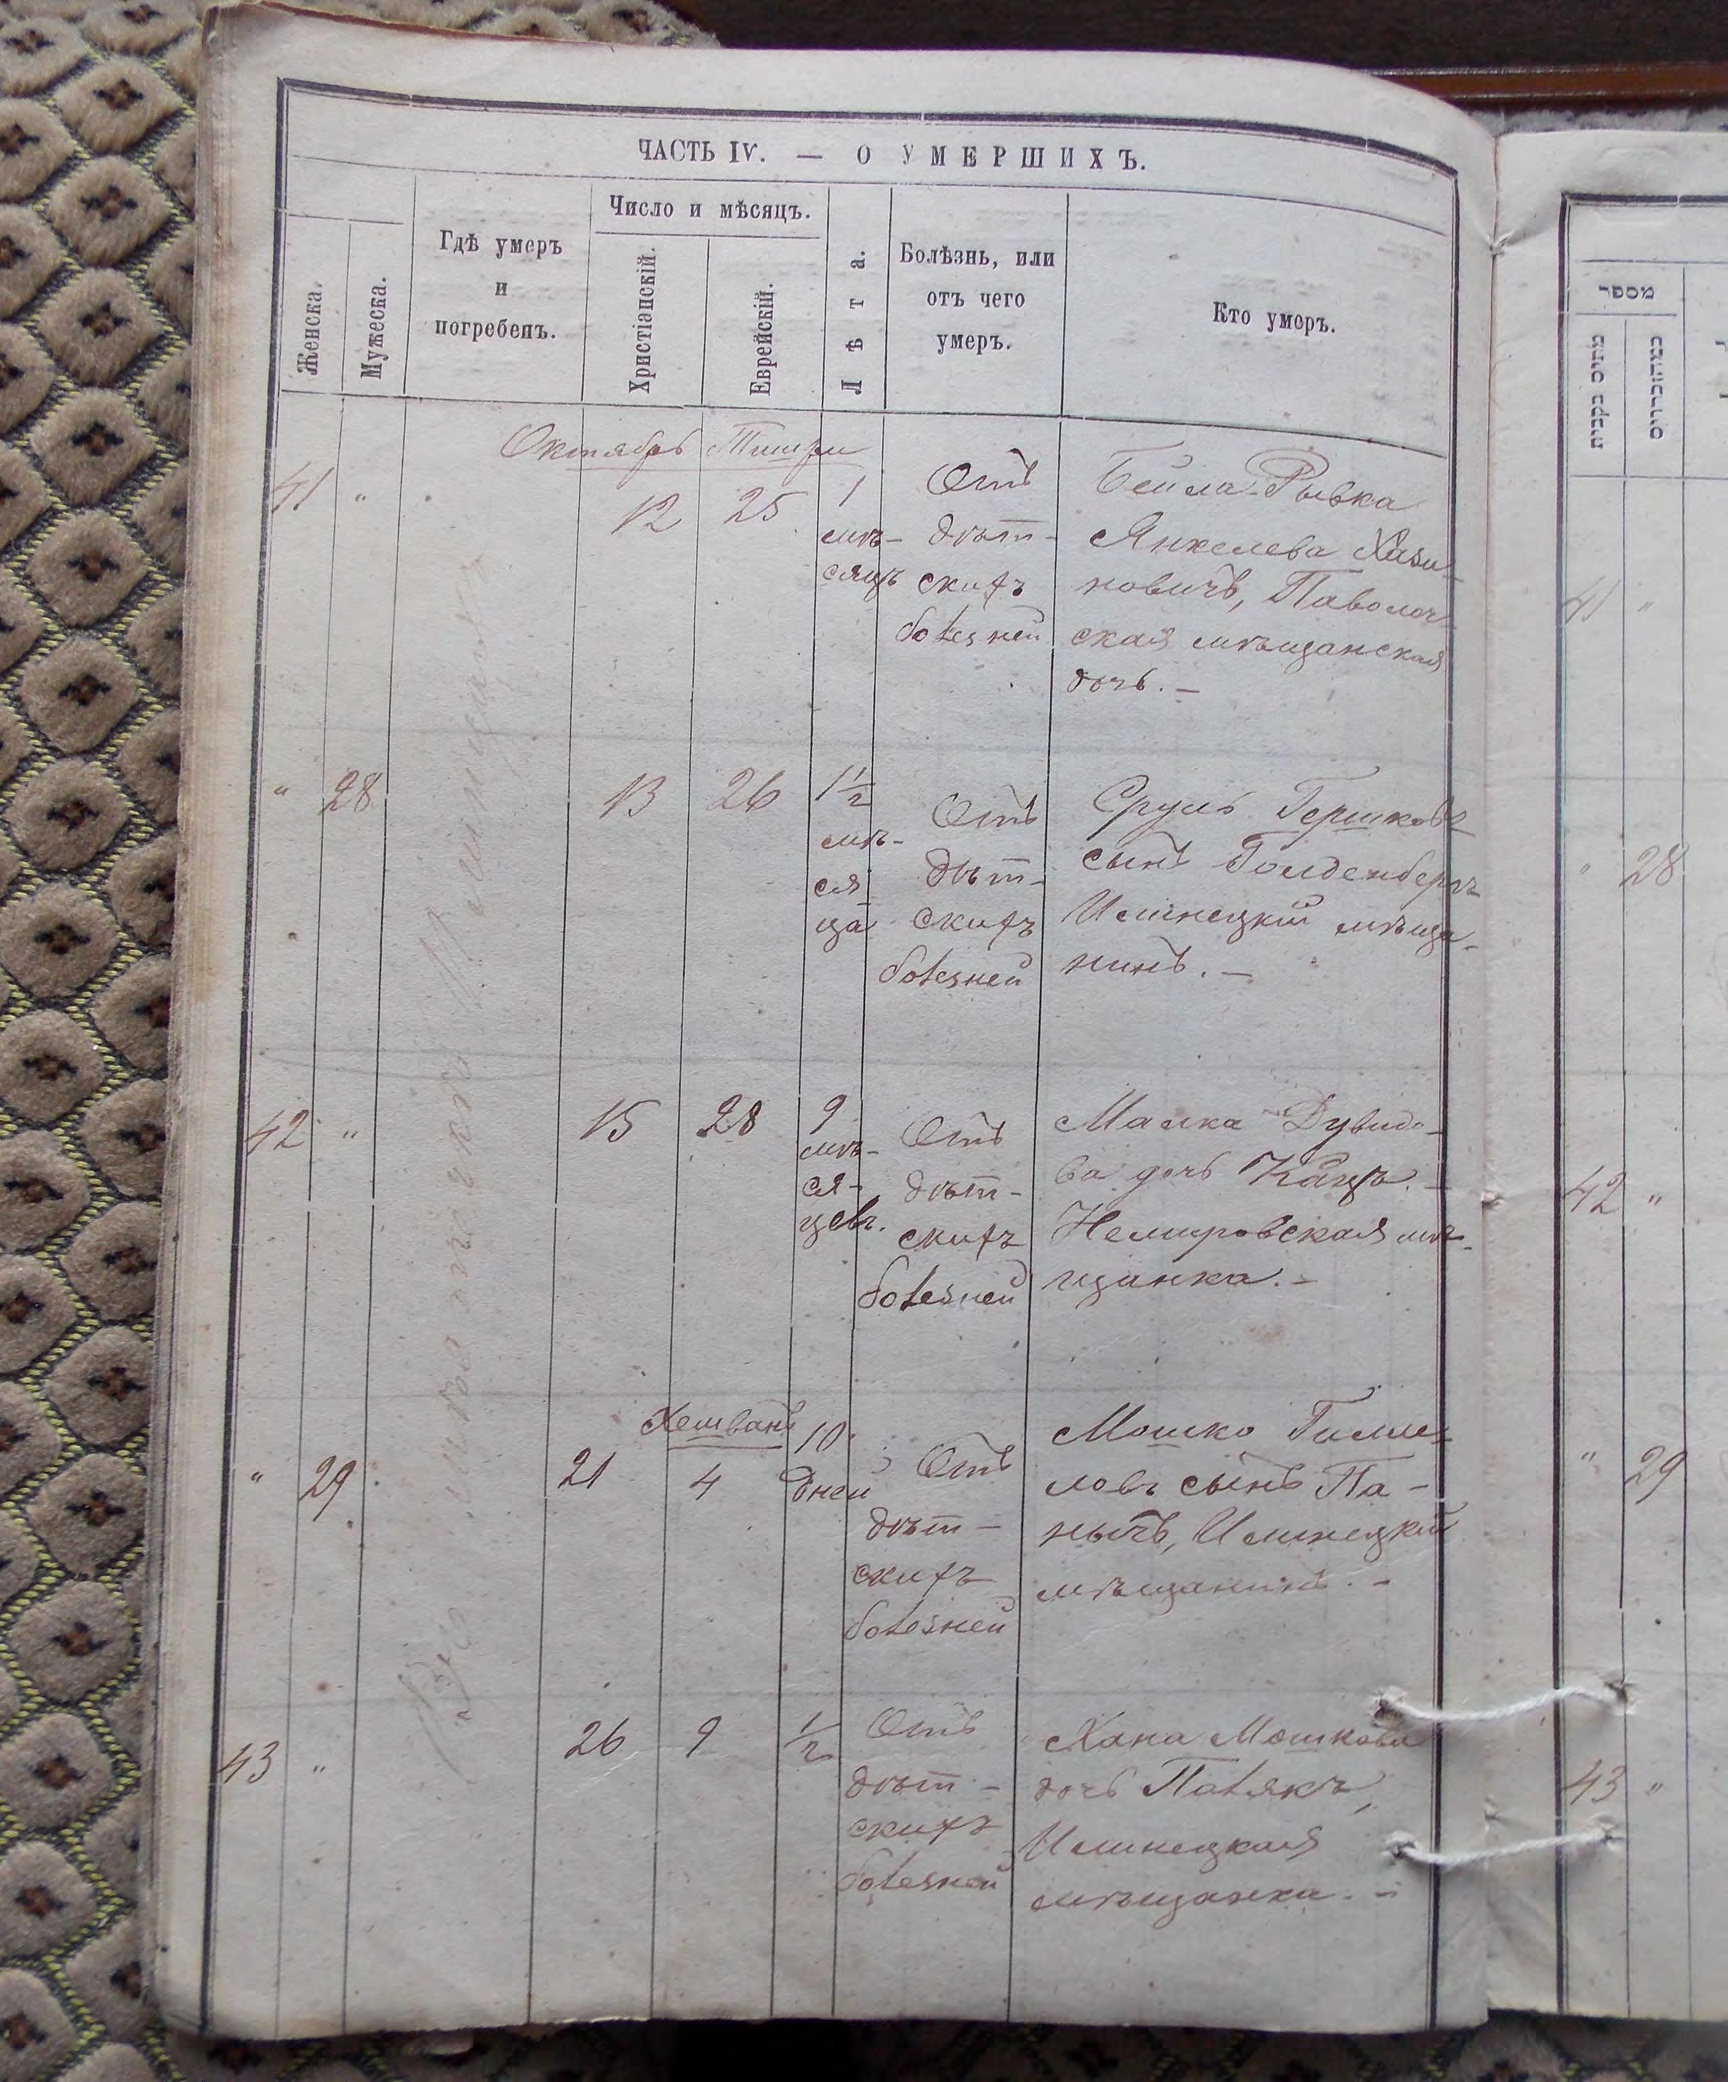 ЧАСТЬ IV. — О УМЕРШИХЪ.
Женска.
Мужеска.
Гдѣ умеръ
и
погребенъ.
Число и мѣсяцъ.
Христіанскій.
Еврейскій.
Лѣта.
Болѣзнь, или
отъ чего
умеръ.
Кто умеръ.
Октябрь Тишри
41 " 12 25 1
мѣ-
сяцъ
Отъ
дѣт-
скихъ
болезней
Бейла-Рывка
Янкелева Хази-
новичъ, Паволоч-
ская мѣщанская
дочь. —
" 28 13 26 1½
мѣ-
ся
ца
Отъ
дѣт-
скихъ
болезней
Сруль Гершковъ
сынъ Голденбергъ
Илинецкій мѣща-
нинъ. —
42 " 15 28 9
мѣ-
ся-
цевъ.
Отъ
дѣт-
скихъ
болезней
Малка Дувидо-
ва дочь Кацъ. —
Немировская мѣ-
щанка. —
Хешванъ
" 29 21 4 10
дней
Отъ
дѣт-
скихъ
болезней
Мошко
ловъ сынъ Па-
нычъ, Илинецкій
мѣщанинъ. —
43 " 26 9 ½
Отъ
дѣт-
скихъ
болезней
Хана Мошкова
дочь Полякъ,
Илинецкая
мѣщанка. —
מספר
41 "
" 28
42 "
" 29
43 "